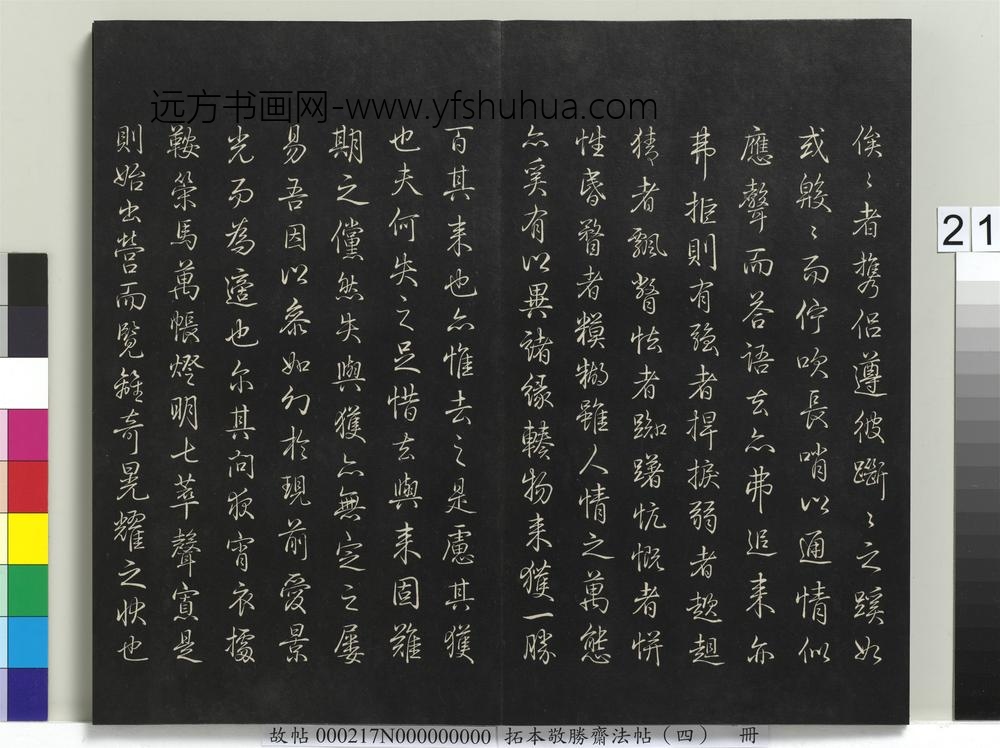 远方书画网-www.yfshuhua.com
俟〻者携侣遵彼斷〻之蹊如
或般〻而佇吹長哨以通情似
應聲而答語去亦弗追来亦
弗拒則有强者捍捩弱者趑趄
猜者飄瞥怯者踟躇忼慨者恲
性昏瞀者模糊雖人情之萬態
亦奚有以異諸緣轃物来獲一勝
百其来也亦惟去之是慮其獲
也夫何失之足惜去與来固難
期之儻然失與獲亦無定之屢
易吾因以参如幻於現前愛景
光而為邅也尔其向夜宵衣據
鞍策馬萬帳燈明七萃聲寘是
則始出營而覽離奇晃耀之映也
21
故帖 000217N000000000 拓本敬勝齋法帖（四） 冊